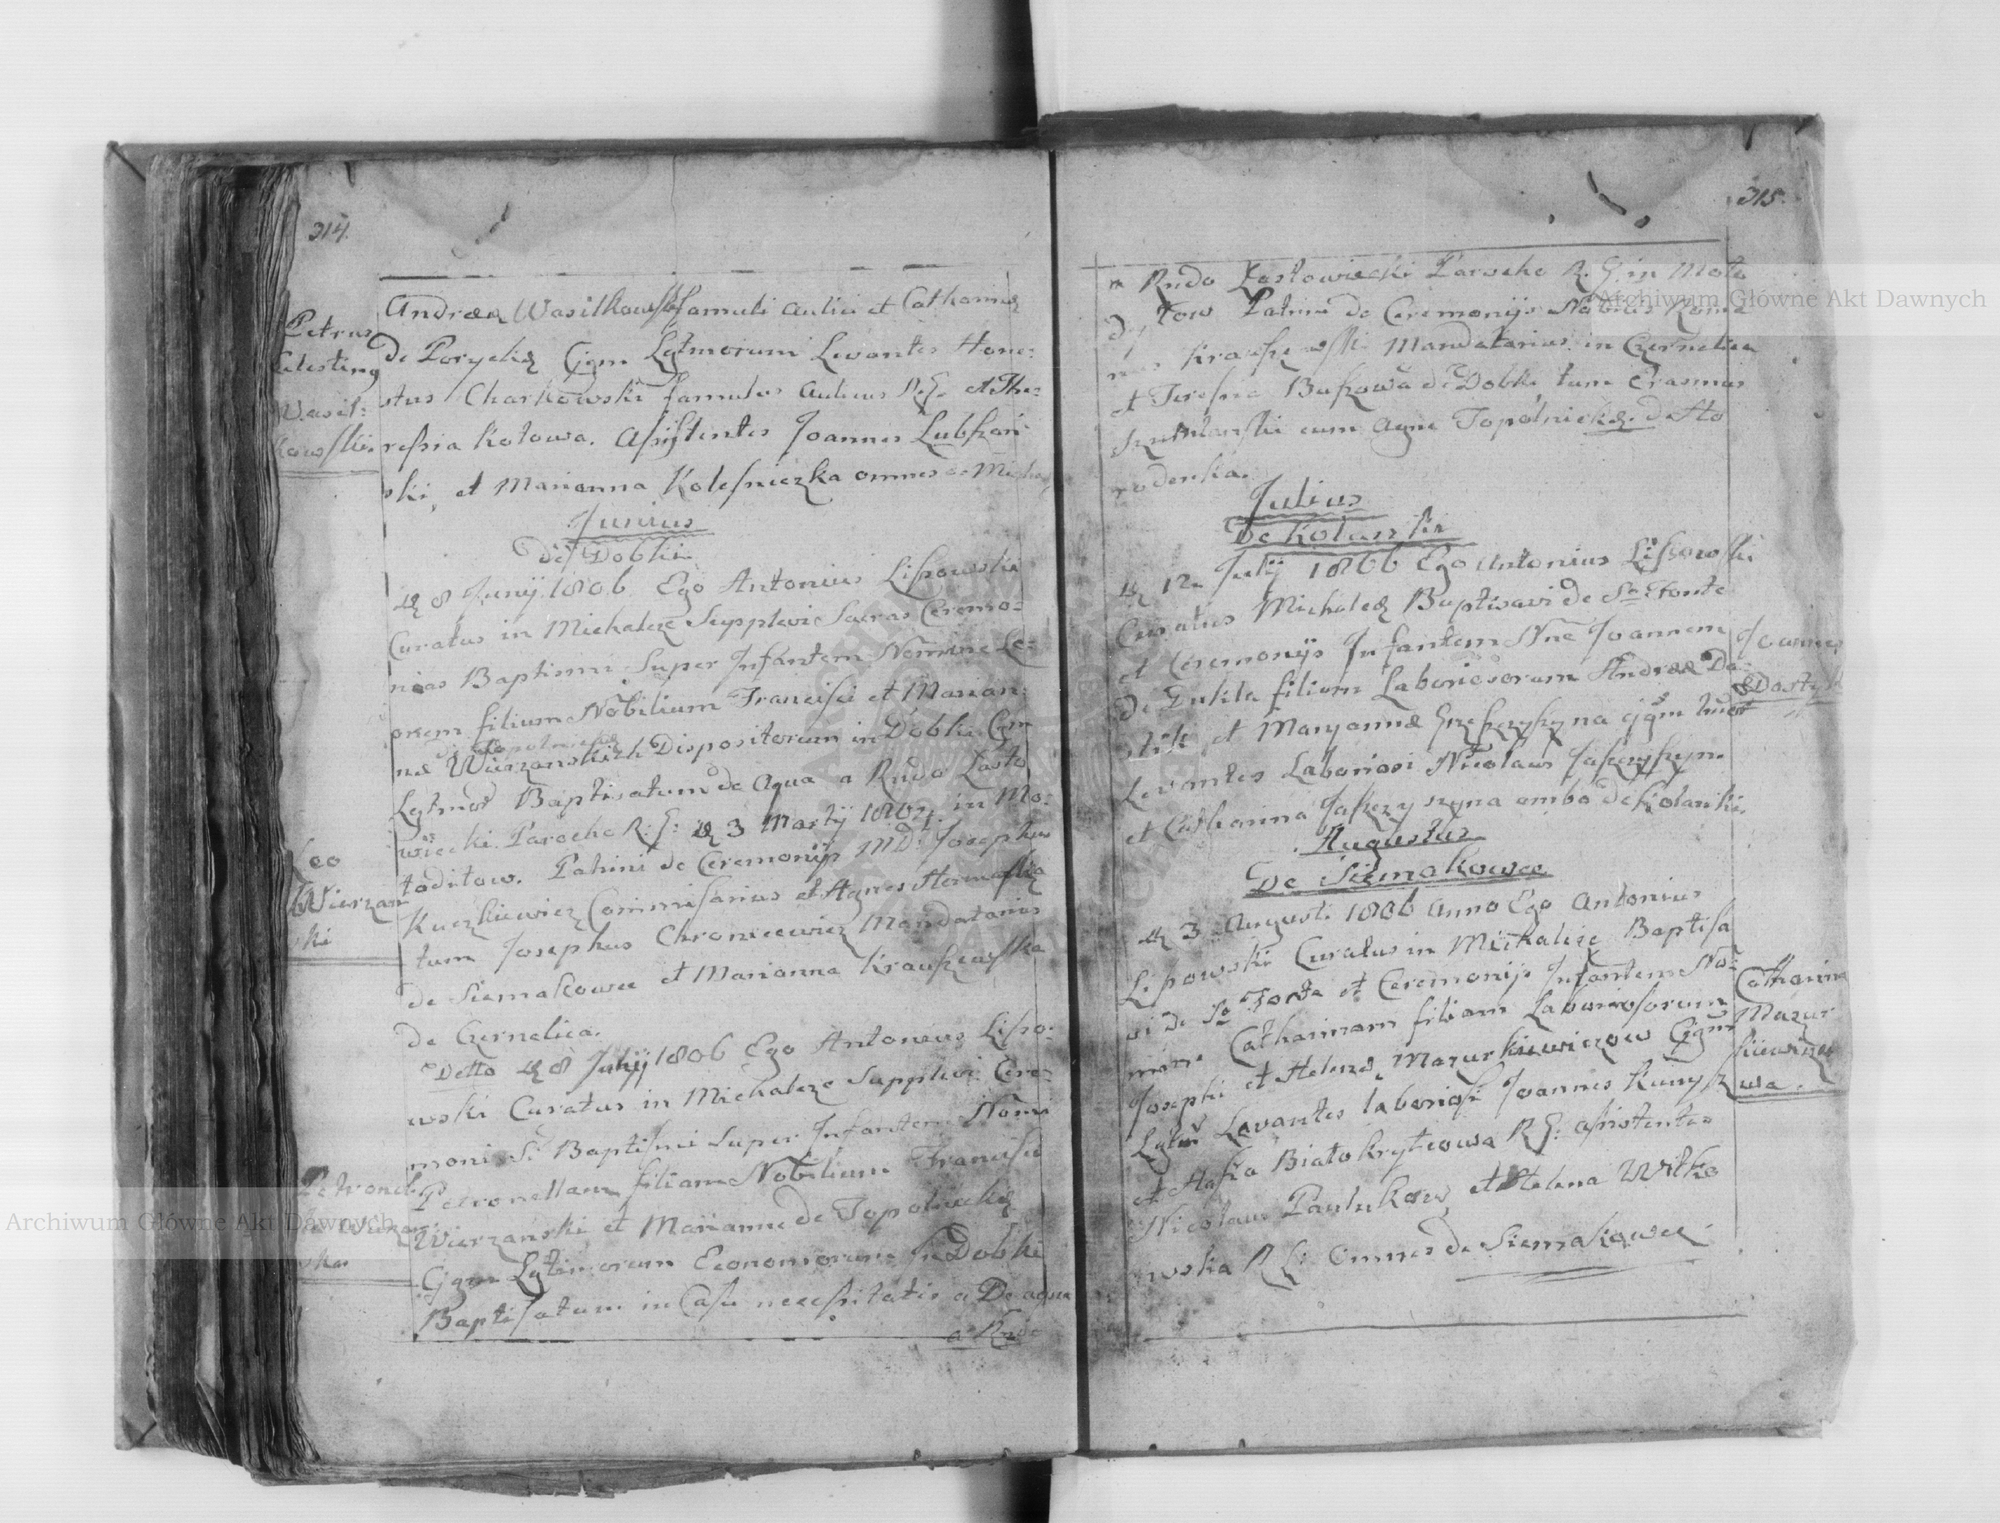 314.
Petrus
Celesting
Wasil:
kowski.
Andreæ Wasilkowski famuli aulici et Catharinæ
de Poryckæ Cjgm Lgtmorum Levantes Hone:
stus Charkowski famulus aulicus R. G. et The:
ressia Kotowa. Assistentes Joannes Lubkon
ski, et Marianna Kolesniczka omnes de
Junius
de Dobki
8 Junij 1806 Ego Antonius Lipowski
Curatus in Michalcze Supplevi Sacras Ceremo:
nias Baptismi Super Infantem Nomine Le:
onem filium Nobilium Francisci et Marian:
de Topolnickæ
næ Wierzanskich Dispositorum in Dobki Cjgm
Lgtmos Baptisatum de aqua a Rndo Lasto
wiecki Parocho R. G: 3 Martij in Mo:
toditow. Patrini de Ceremonijs MD: Josephus
Kuczkiewicz Commissarius et Agnes
tum Josephus Chroniecwicz Mandatarius
de Siemakowce et Marianna Krauszewska
de Czernelica.
Leo
Wierzan
ski
Detto 8 1806 Ego Antonius Lipo:
wski Curatus in Michalcze Supplevi Cere:
moni St Baptismi Super Infantem Nomi
Petronellam filiam Nobilium Francisci
Wierzanski et Marianne de Topolnickæ
Cjgm Lgtimorum Economorum in Dobki
Baptisatum in Casu necessitatis a De aqua
a Rndo
Petronel
la Wierzan
ska
315.
a Rndo Lastowiecki Parocho R. G. in Moto
dy tow Patrini de Ceremonijs Nobiles Roma
nus Krauszewski Mandatarius in Czernelica
et Teresia Bukowa de Dobki tum Erasmus
Szumlanski cum Agne Topolnickæ de Ho
rodenka.
Julius
De Kolanki
12 Julij 1806 Ego Antonius Lipowski
Curatus Michalcæ Baptisavi de So Fonte
et Ceremonijs Infantem Nne Joannem
De filium Laboriosorum Andreæ Do:
stik et Maryannæ cjgm
Levantes Laboriosi Nicolaus
et Catharina ambo de Kolanki.
Joannes
Dostyk
Augustus
De Siemakowce
3 Augusti 1806 Anno Ego Antonius
Lipowski Curatus in Michalcze Baptisa
vi de So Fonte et Ceremonijs Infantem No:
mine Catharinam filiam Laboriosorum
Josephi et Helenæ Mazurkiewiczow Cjgm
Lgtm Levantes laboriosi Joannes
et Biatokrytowa R G: assistentes
Nicolaus Paulukow et Helena Witko
wska R L: Omnes de Siemakowce
Catharina
Mazur
kiewiczo
wa.
Archiwum Główne Akt Dawnych
Archiwum Główne Akt Dawnych